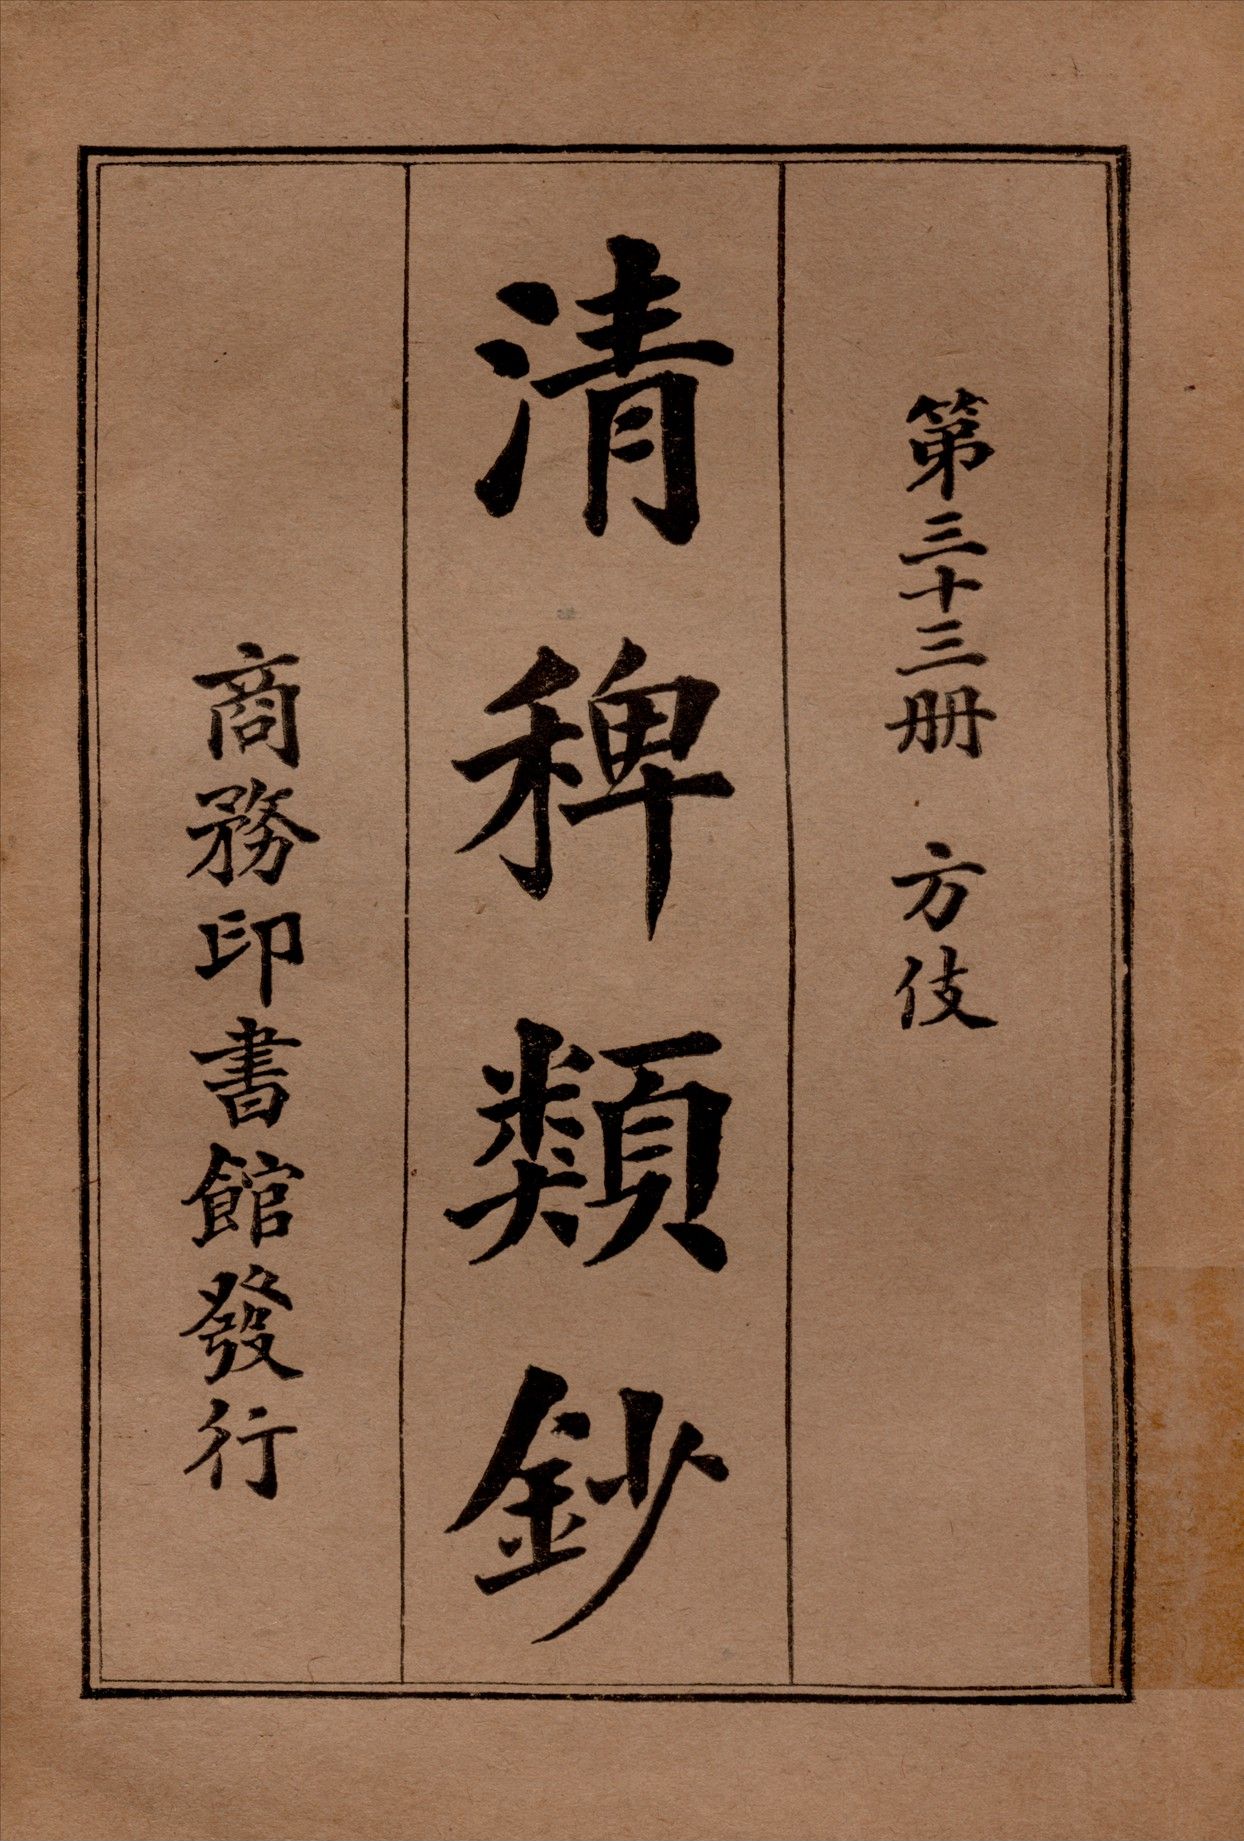 第三十三册　方伎
清稗類鈔
商務印書館發行